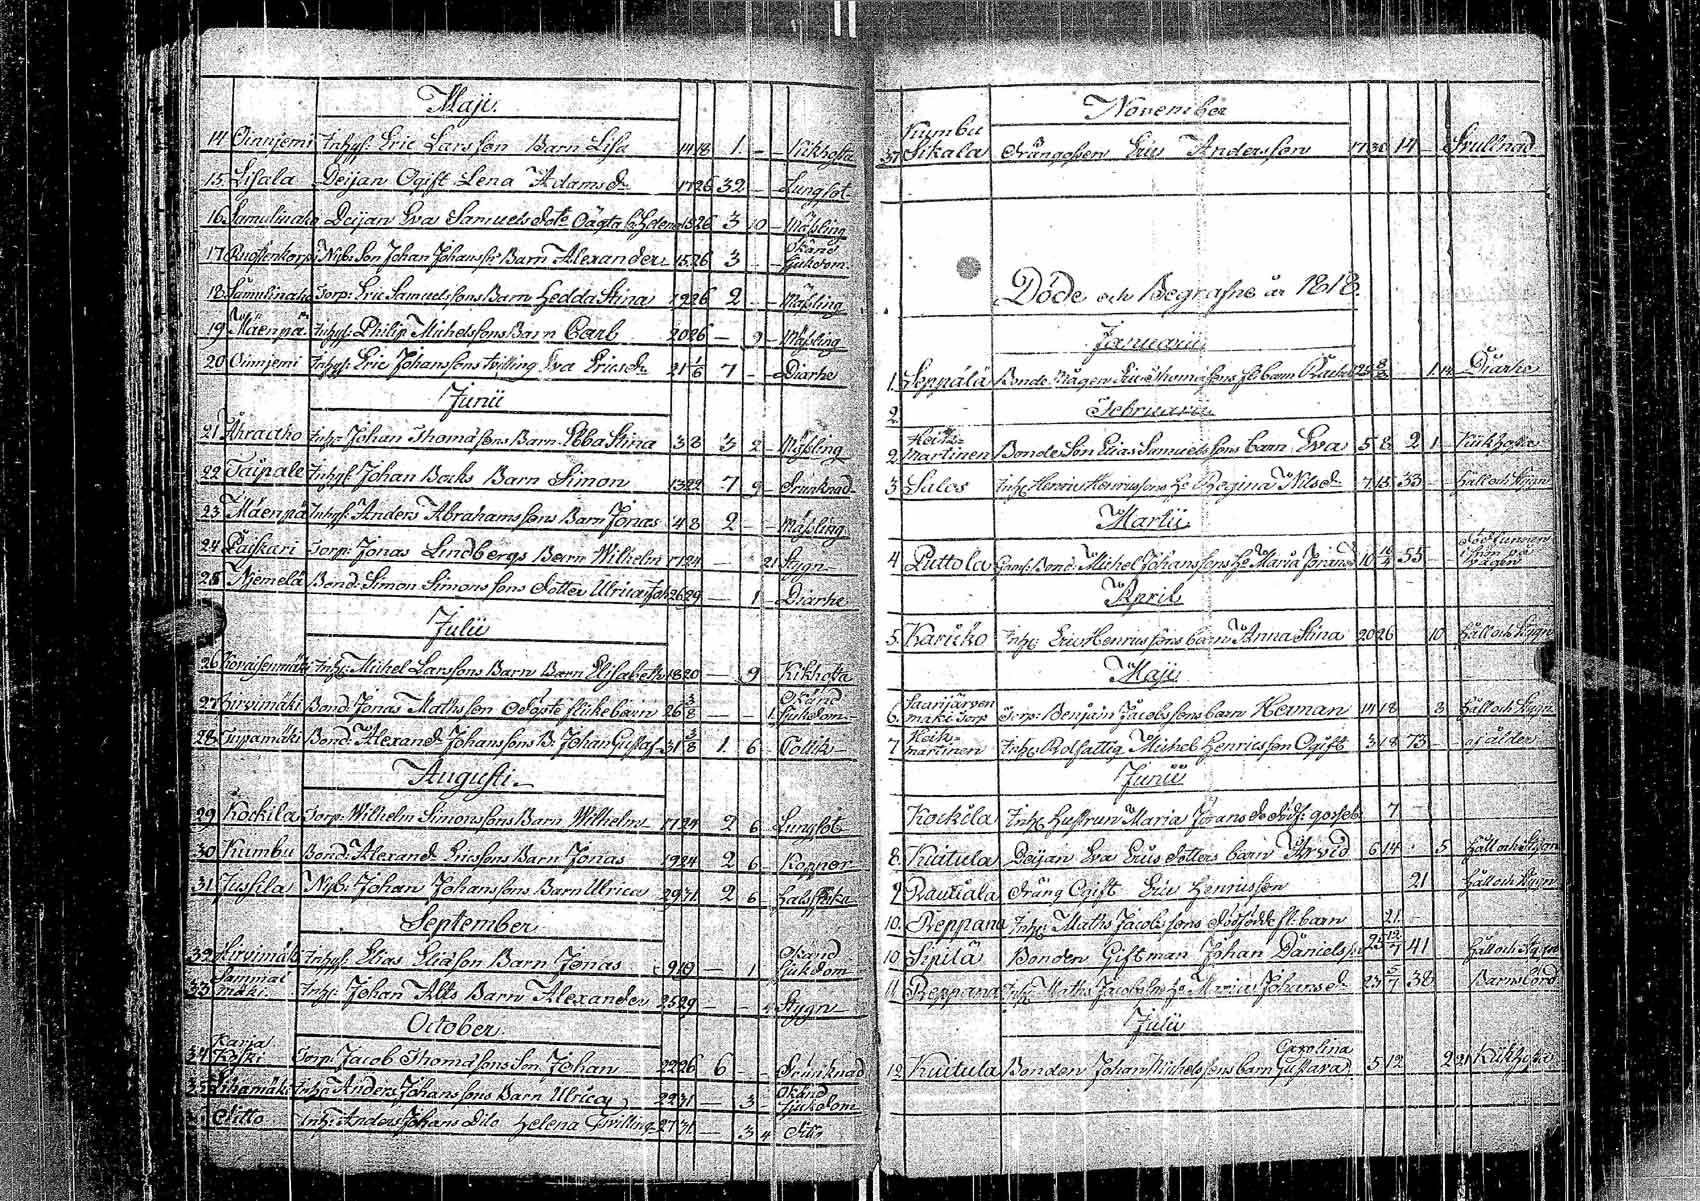 Maji.
14 Oinijemi Inhys: Eric Larsson Barn Lisa 14 18 1 - - Kikhosta
15. Lisala Deijan Ogift Lena Adamsdr 17 26 32 - Lungsot
16 Samulinaho Deijan Eva Samuelsdotr Oägta 15 26 3 10 - Mässling
17 Nyb: Son Johan Johanss: Barn Alexander 15 26 3 - - Okänd sjukdom
18 Samulinaho Torp: Eric Samuelssons Barn Hedda Stina 19 26 2 - - Mässling
19 Mäenpä Inhys: Philip Michelssons Barn Carl 20 26 - 9 - Mässling
20 Oinijemi Inhys: Eric Johanssons tvilling Eva Ericsdr 21 1/6 7 - Diarhe
Junii
21 Ahraaho Inh: Johan Thomassons Barn Ebba Stina 3 8 3 2 - Mässling
22 Taipale Inhys: Johan Bocks Barn Simon 13 22 7 9 - Drunknad
23 Mäenpä Inhys: Anders Abrahamssons Barn Jonas 4 8 2 - - Mässling
24 Paiskari Torp: Jonas Lindbergs Barn Wilhelm 17 24 - - 21 Stygn
25 Njemelä Bond: Simon Simonssons Dotter Ulrica 26 29 - 1 Diarhe
Julii
26 Inhy: Michel Larssons Barn Barn Elisabeth 18 20 - 9 Kikhosta
27 Hirvimäki Bond: Jonas Mathsson Odöpte flickebarn 26 3/8 - - 1 Okänd sjukdom
28 Bond: Alexand: Johanssons B: Johan Gustaf 31 3/8 1 6 - Collik
Augusti
29 Kockila Torp: Wilhelm Simonssons Barn Wilhelm 17 24 2 6 - Lungsot
30 Kumbu Bond: Alexand: Ericssons Barn Jonas 19 24 2 6 - Koppor
31 Jussila Nyb: Johan Johanssons Barn Ulrica 29 31 2 6 - Halssjuka
September
32 Hirvimäki Inhys: Elias Eliasson Barn Jonas 9 19 - 1 Okänd sjukdom
33 Sammal mäki Inhy: Johan Alts Barn Alexander 25 29 - 4 Stygn
October
34 Karja koski Torp: Jacob Thomassons Son Johan 22 26 6 - - Drunknad
35 Inhy: Anders Johanssons Barn Ulrica 22 31 - 3 - Okänd sjukdom
Ditto Inh: Anders Johans Dito Helena Tvilling 27 31 - 3 4 Dito
November
37 Kumbu Sikala Drängossen Eric Andersson 17 30 14 - Svullnad
Döde och Begrafne år 1818.
Januarii
1. Seppälä Bonde Mågen Eric Thomassons fl: barn Rachel 1 14 Diarhe
2. Februarii
2. Heik- Martinen Bonde Son Elias Samuelssons barn Eva 5 8 2 1 - Kikhosta
3 Salos Inh: Henric Henricssons H: Regina Nilsdr 7 15 33 - - Håll och Stygn
Martii
4 Puttola Gaml: Bond: Michel Johanssons H: Maria Jöransd 55 - död funnen på vägen
April
5. Karicko Inh: Eric Henricssons barn Anna Stina 20 26 10 Håll och Stygn
Maji
6. Saarijärven mäki Torp Torp: Benjam: Jacobssons barn Herman 14 18 3 Håll och Stygn
7 Heik- martinen Inhy: Rolfattig Michel Henricsson Ogift 3 18 73 - - af ålder
Junii
Kockila Inhy: Hustrun Maria Jöransdr dödf: gosseb: 7 -
8. Kuitula Deijan Eva Ericsdotters barn Arvid 6 14 5 Håll och Stygn
9 Rautiala Dräng Ogift Eric Henricsson 21 Håll och Stygn
10. Reppana Inhy: Maths Jacobssons dödfödde fl: barn - 21 -
10 Sipilä Bonden Gift man Johan Daniels 25 12/7 41 Håll och Stygn
11 Reppana Inhy: Maths Jacobssons H: Maria Johansdr 23 5/7 38 Barnsbörd
Julii
12 Kuitula Bonden Johan Michelssons barn Carolina Gustava 5 12 2 21 Kikhosta